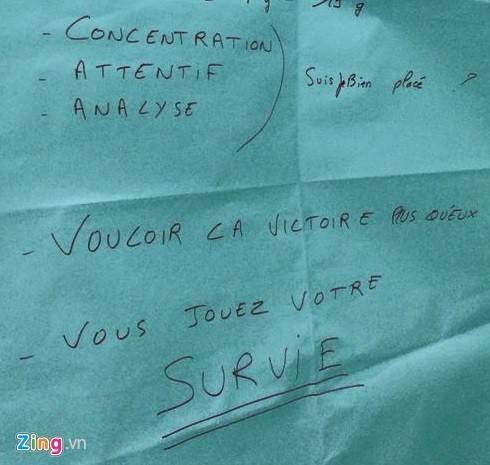 - CONCENTRATION
- ATTENTIF
- ANALYSE
Suis je Bien placé ?
- VOULOIR LA VICTOIRE PLUS QU'EUX
- VOUS JOUEZ VOTRE
SURVIE
Zing.vn